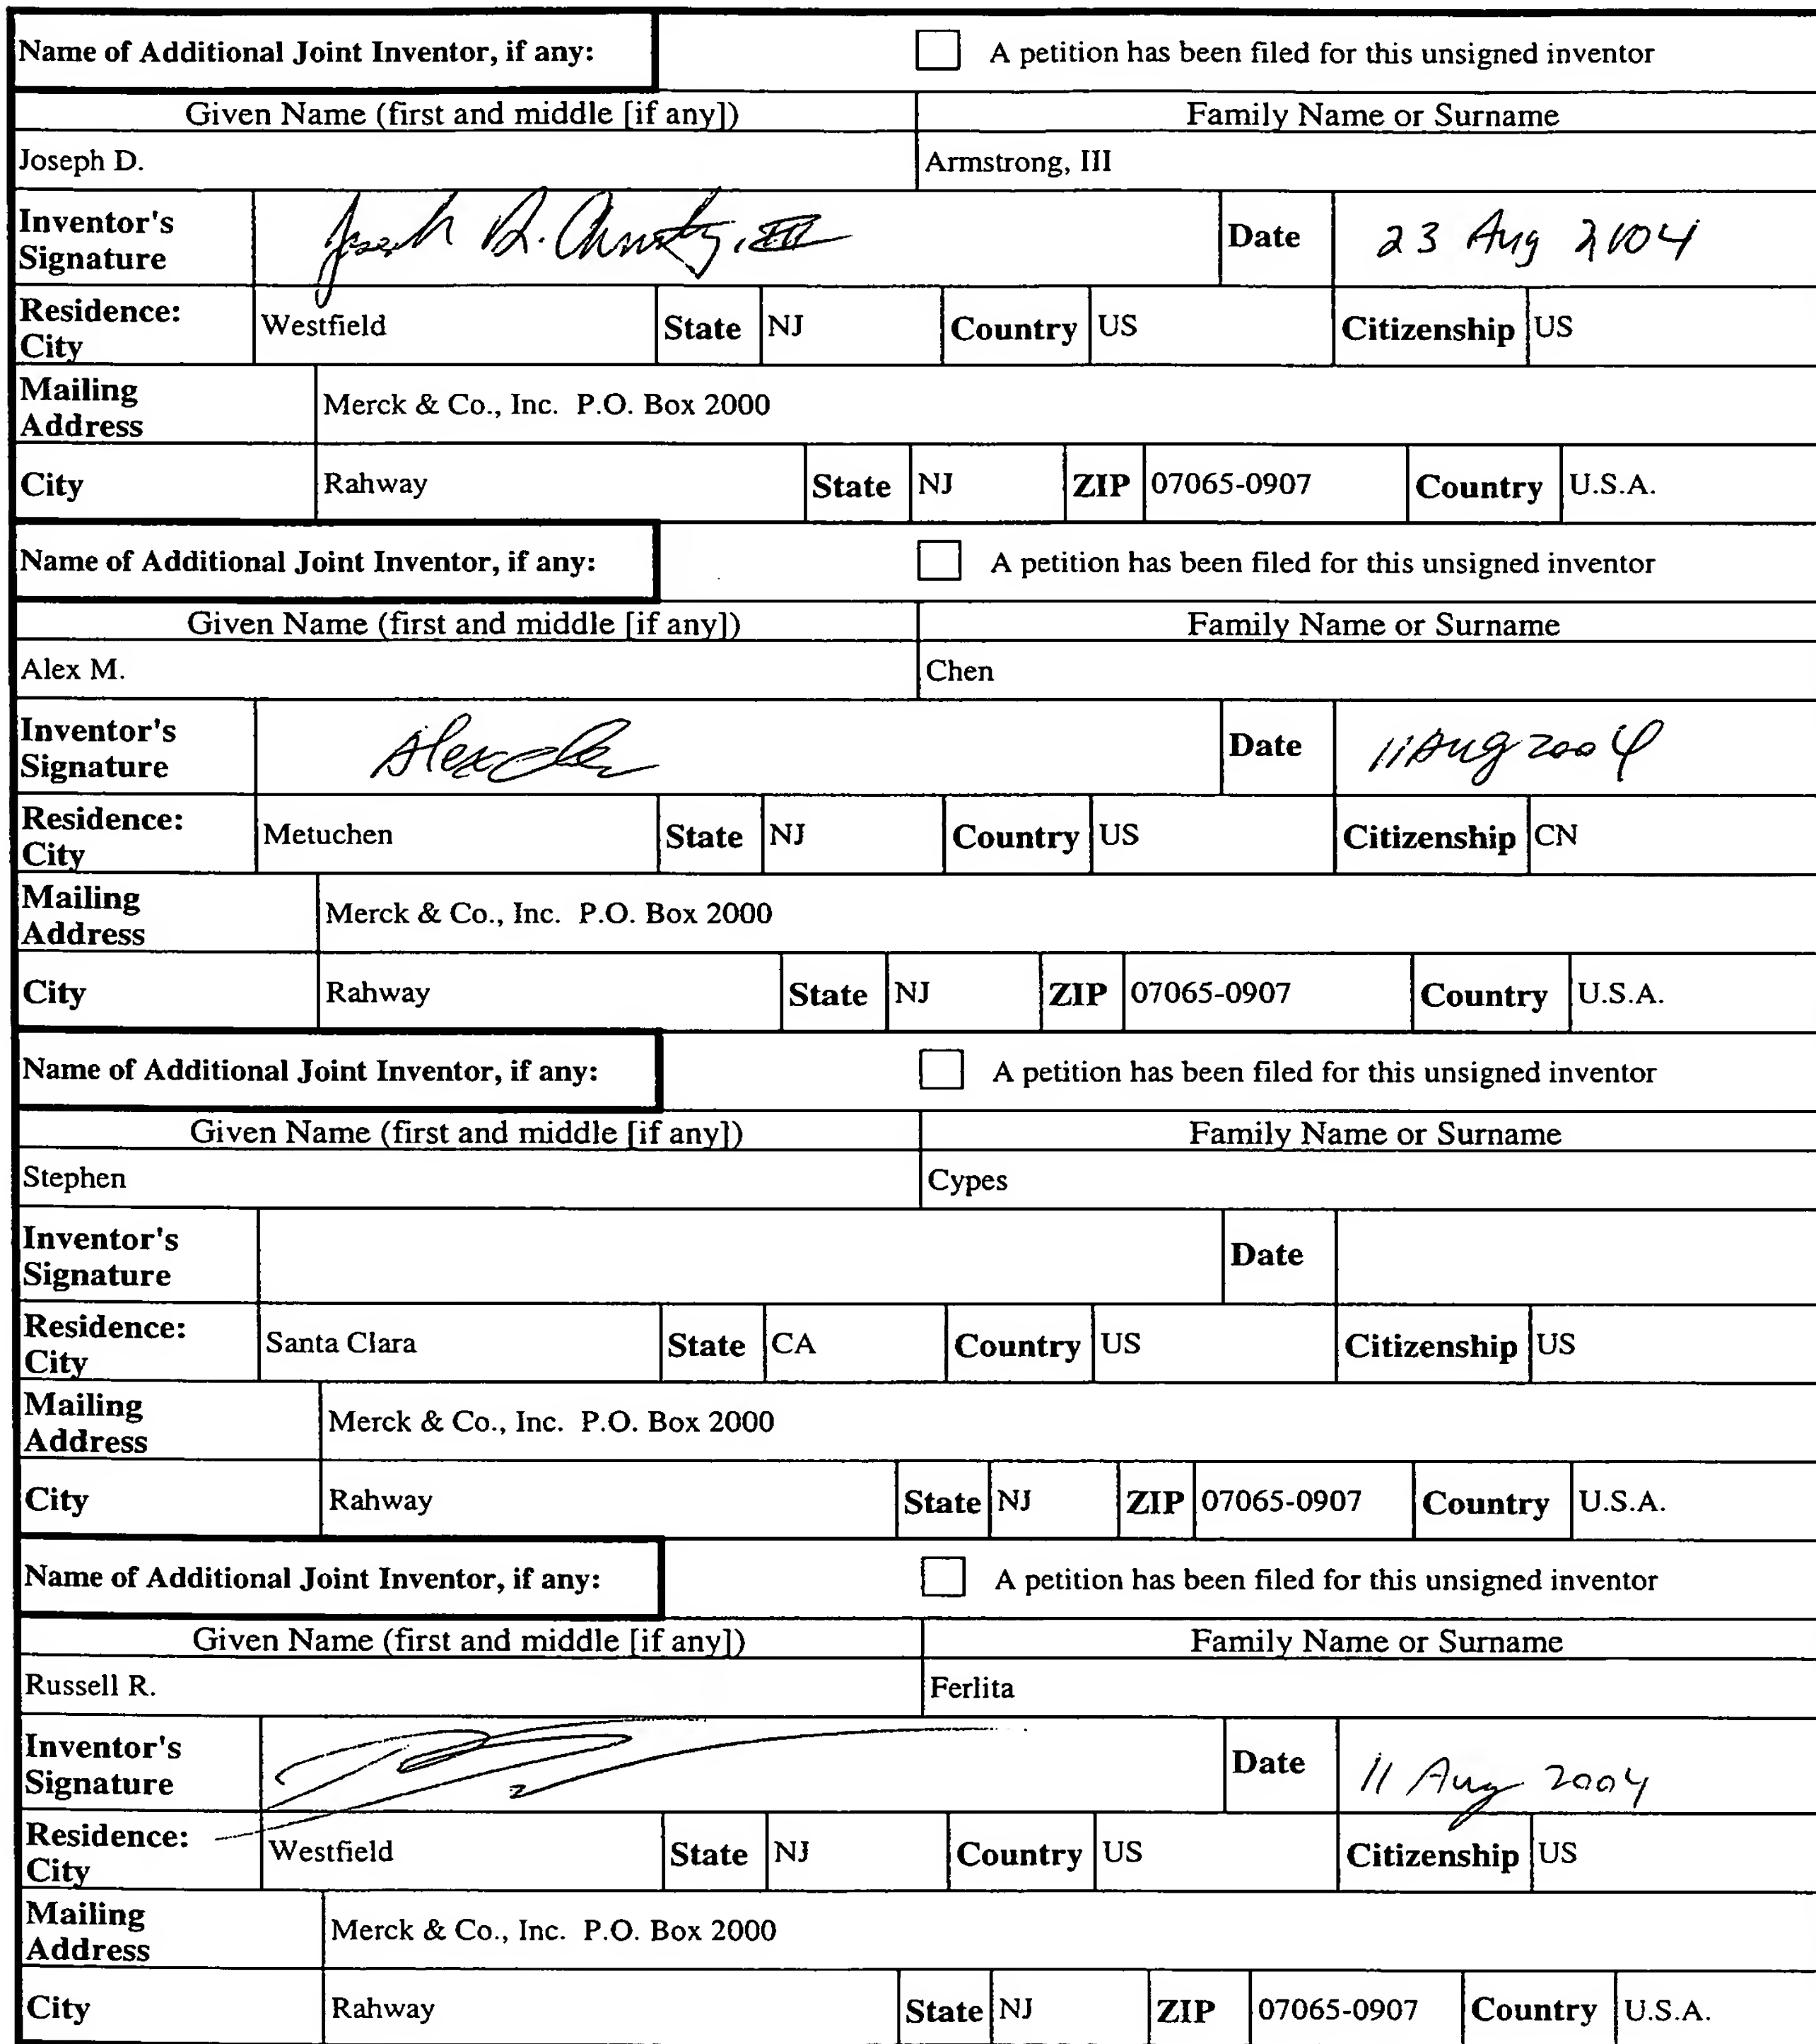 Name of Additional Joint Inventor, if any: A petition has been filed for this unsigned inventor
Given Name (first and middle [if any]) Family Name or Surname
Joseph D. Armstrong, III
Inventor's Signature Joseph D. Armstrong, III Date 23 Aug 2004
Residence: City Westfield State NJ Country US Citizenship US
Mailing Address Merck & Co., Inc. P.O. Box 2000
City Rahway State NJ ZIP 07065-0907 Country U.S.A.
Name of Additional Joint Inventor, if any: A petition has been filed for this unsigned inventor
Given Name (first and middle [if any]) Family Name or Surname
Alex M. Chen
Inventor's Signature Alex Chen Date 11 Aug 2004
Residence: City Metuchen State NJ Country US Citizenship CN
Mailing Address Merck & Co., Inc. P.O. Box 2000
City Rahway State NJ ZIP 07065-0907 Country U.S.A.
Name of Additional Joint Inventor, if any: A petition has been filed for this unsigned inventor
Given Name (first and middle [if any]) Family Name or Surname
Stephen Cypes
Inventor's Signature Date
Residence: City Santa Clara State CA Country US Citizenship US
Mailing Address Merck & Co., Inc. P.O. Box 2000
City Rahway State NJ ZIP 07065-0907 Country U.S.A.
Name of Additional Joint Inventor, if any: A petition has been filed for this unsigned inventor
Given Name (first and middle [if any]) Family Name or Surname
Russell R. Ferlita
Inventor's Signature Date 11 Aug 2004
Residence: City Westfield State NJ Country US Citizenship US
Mailing Address Merck & Co., Inc. P.O. Box 2000
City Rahway State NJ ZIP 07065-0907 Country U.S.A.